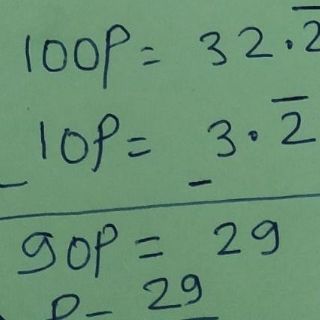 100P = 32.2̅
10P = 3.2̅
- -
90P = 29
P = 29